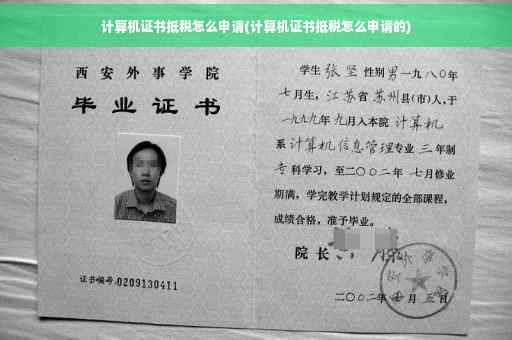 计算机证书抵税怎么申请(计算机证书抵税怎么申请的)
西安外事学院
毕业证书
证书编号:0209130411
学生张坚性别男一九八〇年
七月生，江苏省苏州县(市)人，于
一九九九年九月入本院计算机
系计算机信息管理专业三年制
专科学习，至二〇〇二年七月修业
期满，学完教学计划规定的全部课程，
成绩合格，准予毕业。
院长
二〇〇二年七月五日